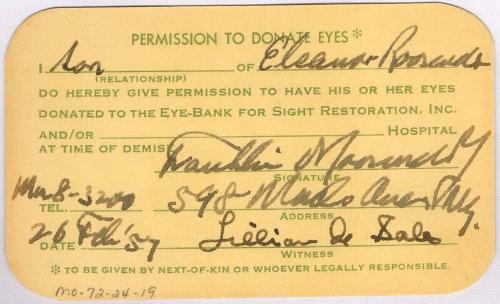 PERMISSION TO DONATE EYES *
I, son OF Eleanor Roosevelt
(RELATIONSHIP)
DO HEREBY GIVE PERMISSION TO HAVE HIS OR HER EYES
DONATED TO THE EYE-BANK FOR SIGHT RESTORATION, INC.
AND/OR HOSPITAL
AT TIME OF DEMISE. Franklin D Roosevelt Jr
SIGNATURE
TEL. Mu 8-3200 598 Madis Ave NY.
ADDRESS
DATE 26 Feb '57 Lillian de
WITNESS
* TO BE GIVEN BY NEXT-OF-KIN OR WHOEVER LEGALLY RESPONSIBLE.
MO-72-24-19